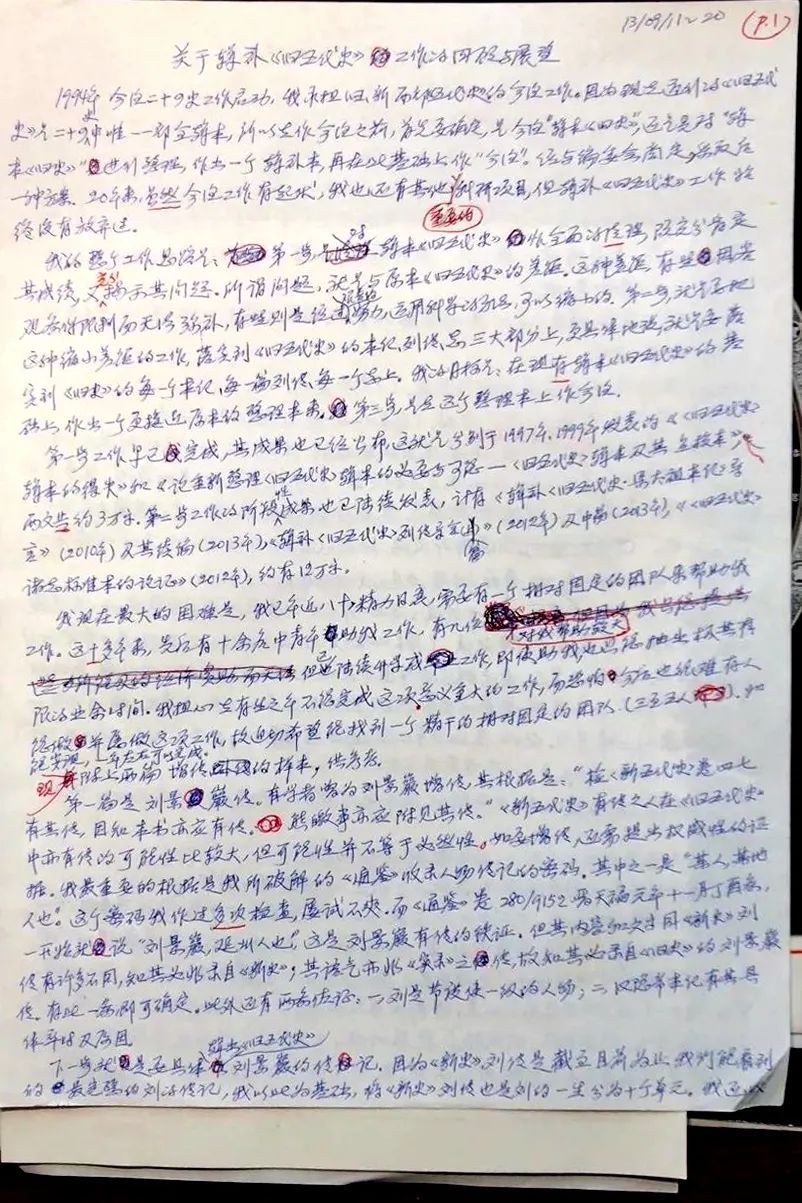 13/09/11~20 (P.1)
关于辑补《旧五代史》工作的回顾与展望
1994年今注二十四史工作启动,我承担旧、新两部《五代史》的今注工作。因为现在通行的《旧五代
史》是二十四史中唯一一部全辑本,所以在作今注之前,首先要确定,是今注"辑本《旧史》",还是对"辑
本《旧史》"进行整理,作出一个辑补本,再在此基础上作"今注"。经与编委会商定,采取后
一种方案。20年来,虽然今注工作有起伏,我也还有其他科研项目,但辑补《旧五代史》工作始
终没有放弃过。
我的整个工作思路是:第一步,是对辑本《旧五代史》作全面的清理,既充分肯定
其成绩,又揭示其问题。所谓问题,就是与原本《旧五代史》的差距。这种差距,有些因客
观条件限制而无法弥补,有些则是经过努力,运用科学的方法,可以缩小的。第二步,就是要把
这种缩小差距的工作,落实到《旧五代史》的本纪、列传、志三大部分上,更具体地说,就是要落
实到《旧史》的每一个本纪,每一篇列传,每一个志上。我的目标是:在现存辑本《旧五代史》的基
础上,作出一个更接近原本的整理本来。第三步,是在这个整理本上作今注。
第一步工作早已完成,其成果也已经公布,这就是分别于1997年、1999年发表的《《旧五代史》
辑本的得失》和《论重新整理《旧五代史》辑本的必要与可能——《旧五代史》辑本及其点校本》,
两文共约3万字。第二步工作的阶段性成果也已陆续发表,计有《辑补《旧五代史·梁太祖本纪》导
言》(2010年)及其续编(2013年),《辑补《旧五代史》列传导言(上)》(2012年)及中篇(2013年),《《旧五代史》
诸志标准本的论证》(2012年),约有12万字。
我现在最大的困难是,我已年近八十,精力日衰,需要有一个相对固定的团队来帮助我
工作。这十多年来,先后有十余位中青年助我工作,有几位对我帮助较大
但已陆续升学或工作,即使助我也只能抽出极其有
限的业余时间。我担心在有生之年不能完成这项意义重大的工作,而恐怕今后也很难有人
能做并愿做这项工作,故迫切希望能找到一个精干的相对固定的团队(三至五人)。如
能实现,一年左右可以完成。
现附上两篇增传的样本,供参考。
第一篇是刘景巖传。有学者增为刘景巖增传,其根据是:"检《新五代史》卷四七
有其传,因知本书亦应有传。熊皦事亦应附见其传。"《新五代史》有传之人在《旧五代史》
中亦有传的可能性比较大,但可能性并不等于必然性。如要增传,还需提出权威性的证
据。我最重要的根据是我所破解的《通鉴》收录人物传记的密码。其中之一是"某人,某地
人也"。这个密码我作过多次检查,屡试不爽。而《通鉴》卷280/9152晋天福元年十一月丁酉条,
一开始就说"刘景巖,延州人也",这是刘景巖有传的铁证。但其内容和文字同《新史》刘
传有许多不同,知其必非录自《新史》;其语气亦非《实录》之传,故知其必录自《旧史》的刘景巖
传。有此一条即可确定。此外还有两条佐证:一、刘是节度使一级的人物;二、汉隐帝本纪有其具
体卒时及原因。
下一步就是要具体辑出《旧五代史》刘景巖的传记。因为《新史》刘传是截至目前为止我们能看到
的最完整的刘的传记,我以此为基础,将《新史》刘传也是刘的一生分为十个单元。我还以